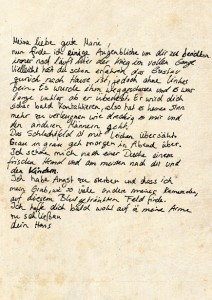 Meine liebe gute Marie,
nun finde ich einige Augenblicke um dir zu
immer noch der Krieg der vollen
Vielleicht hast du schon erfahren das Gustav
zurück nach Hause ist, jedoch ohne linkes
Bein. Es wurde ihm weggeschossen und es war
lange unklar ob er überlebt. Er wird dich
sicher bald kontaktieren, also hat es keinen Sinn
mehr zu verleugnen wie dreckig es mir und
den anderen Männern geht.
Das Schlachtfeld ist mit Leichen übersäht.
Grau in grau geht morgen in Abend über.
Ich sehne mich nach einer Decke einem
frischen Hemd und am meisten nach dir und
den Kindern.
Ich habe Angst zu sterben und dass ich
mein Grab, wie so viele andere meiner Kameraden,
auf diesem Blut getränkten Feld finde.
Ich hoffe dich bald wohl auf in meine Arme
zu schließen
dein Hans